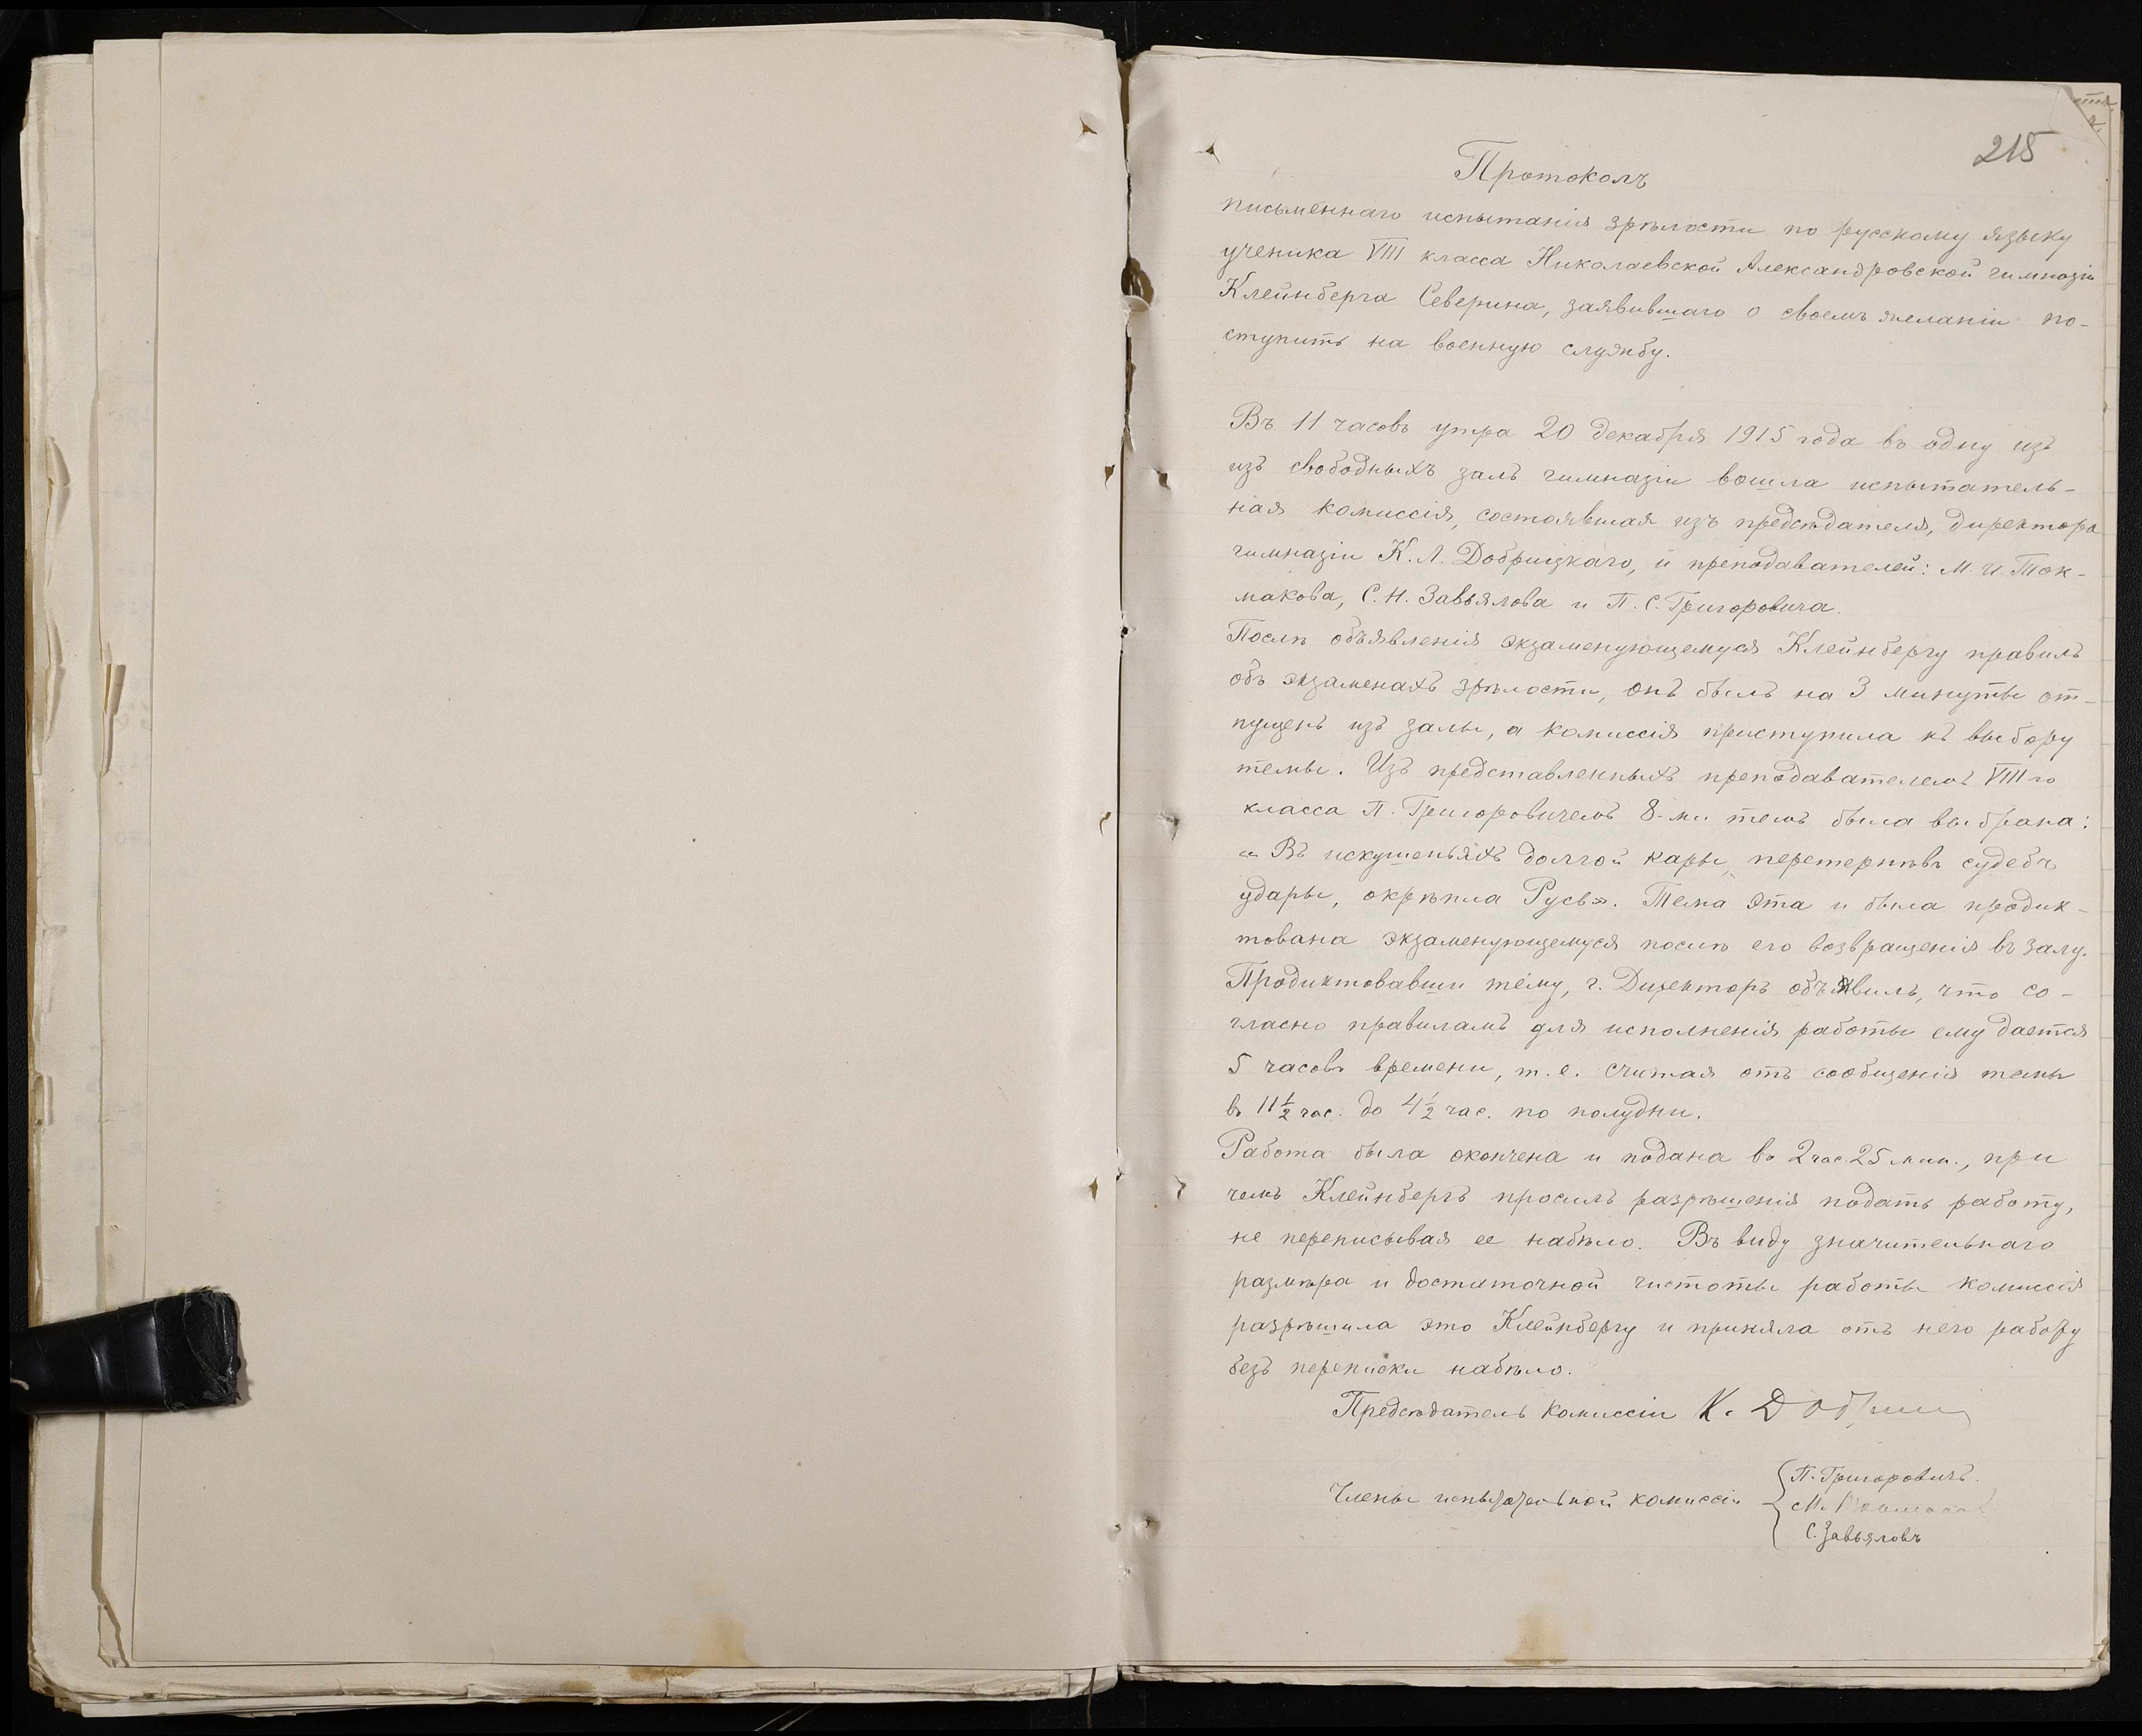 215
Протоколъ
письменнаго испытанія зрѣлости по русскому языку
ученика VIII класса Николаевской Александровской гимназіи
Клейнберга Северина, заявившаго о своемъ желаніи по-
ступить на военную службу.
Въ 11 часовъ утра 20 декабря 1915 года въ одну изъ
изъ свободныхъ залъ гимназіи вошла испытатель-
ная комиссія, состоявшая изъ предсѣдателя, директора
гимназіи К. Л. Добрицкаго, и преподавателей: М. И. Ток-
макова, С. Н. Завьялова и П. С. Григоровича.
Послѣ объявленія экзаменующемуся Клейнбергу правилъ
объ экзаменахъ зрѣлости, онъ былъ на 3 минуты от-
пущенъ изъ залы, а комиссія приступила къ выбору
темы. Изъ представленныхъ преподавателемъ VIII го
класса П. Григоровичемъ 8-ми темъ была выбрана:
„ Въ искушеньяхъ долгой кары, перетерпѣвъ судебъ
удары, окрѣпла Русь». Тема эта и была продик-
тована экзаменующемуся послѣ его возвращенія въ залу.
Продиктовавши тему, г. Директоръ объявилъ, что со-
гласно правиламъ для исполненія работы ему дается
5 часовъ времени, т. е. считая отъ сообщенія темы
въ 11 1/2 час. до 4 1/2 час. по полудни.
Работа была окончена и подана въ 2 час. 25 мин., при
чемъ Клейнбергъ просилъ разрѣшенія подать работу,
не переписывая ее набѣло. Въ виду значительнаго
размѣра и достаточной чистоты работы комиссія
разрѣшила это Клейнбергу и приняла отъ него работу
безъ переписки набѣло.
Предсѣдатель комиссіи К. Добриц
П. Григоровичъ.
Члены испытательной комиссіи М.
С. Завьяловъ